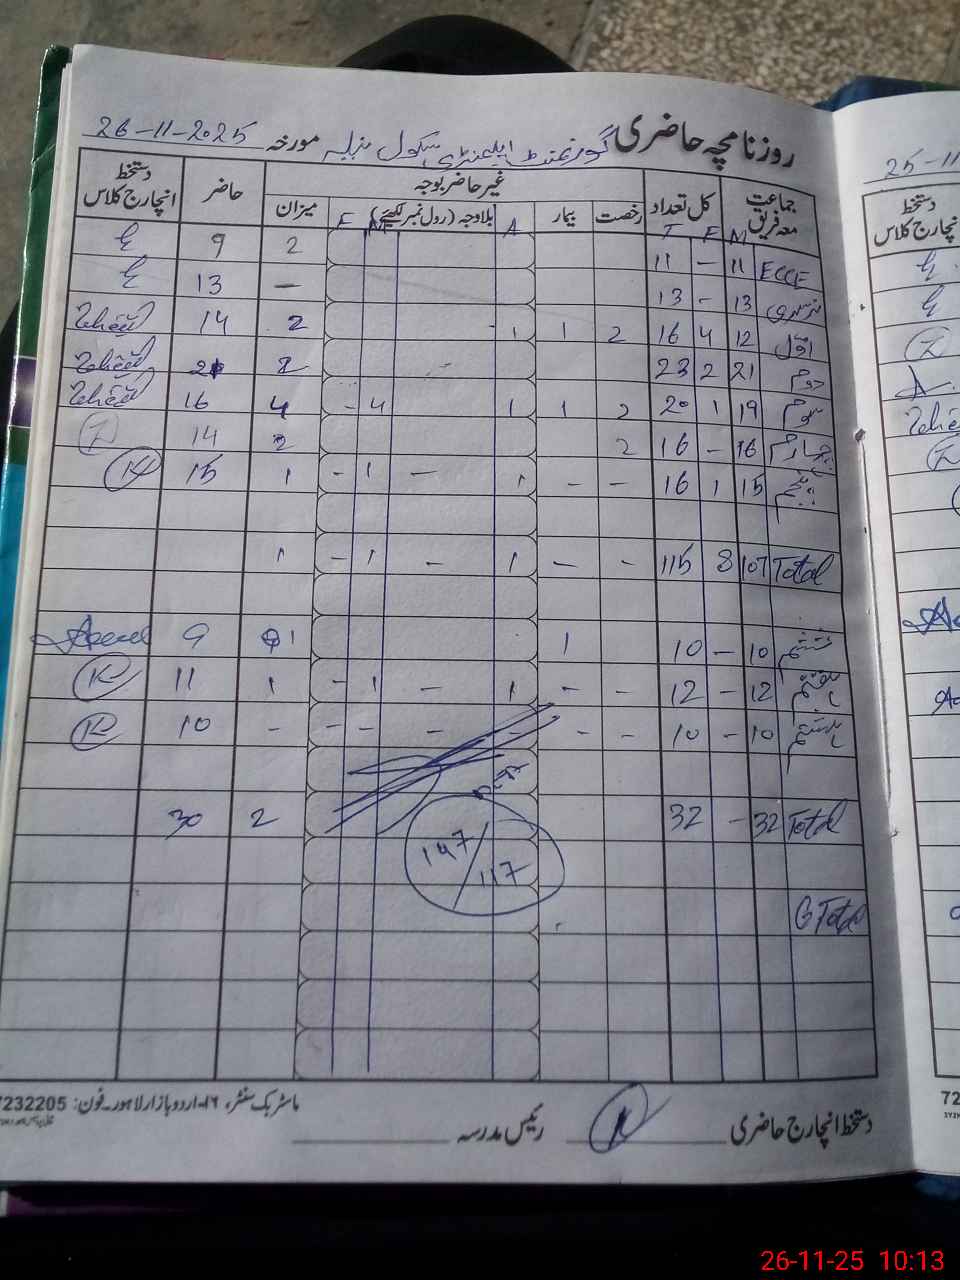 روزنامچہ حاضری گورنمنٹ ایلیمنٹری سکول مورخہ 26-11-2025
جماعت معہ فریق کل تعداد غیر حاضر بوجہ حاضر دستخط انچارج کلاس
رخصت بیمار بلاوجہ (رول نمبر لکھیئے) میزان
M F T A M F
ECCE 11 – 11 2 9
نرسری 13 – 13 – 13
اول 12 4 16 2 1 1 2 14
دوم 21 2 23 2 21
سوم 19 1 20 2 1 1 4 – 4 16
چہارم 16 – 16 2 2 14
پنجم 15 1 16 – – 1 – 1 – 1 15
Total 107 8 115 – – 1 – 1 – 1
ششم 10 – 10 1 1 9
ہفتم 12 – 12 – – 1 – 1 – 1 11
ہشتم 10 – 10 – – – – – – – 10
Total 32 – 32 2 30
147/117
G Total
دستخط انچارج حاضری رئیس مدرسہ
ماسٹر بک سنٹر، ۱۶-اردو بازار لاہور۔ فون: 7232205
25-11
دستخط
انچارج کلاس
72
26-11-25 10:13